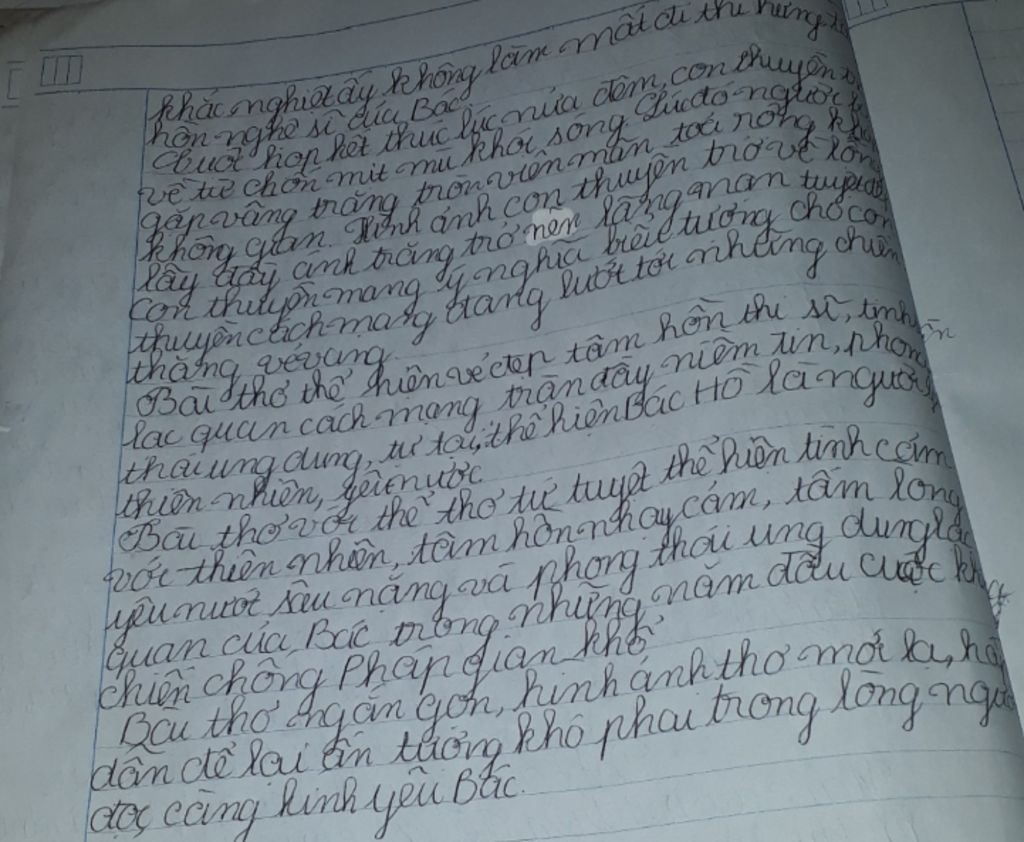 khắc nghiệt ấy không làm mất đi thi hứng
hồn nghệ sĩ của Bác
Cuộc họp kết thúc lúc nửa đêm, con thuyền
về từ chốn mịt mù khói sóng. Lúc đó người
gặp vầng trăng tròn viên mãn toả rộng
không gian. Hình ảnh con thuyền trở về
lấy đầy ánh trăng trở nên lãng mạn tuyệt
Con thuyền mang ý nghĩa biểu tượng cho con
thuyền cách mạng đang lướt tới những chiến
thắng vẻ vang.
Bài thơ thể hiện vẻ đẹp tâm hồn thi sĩ, tinh thần
lạc quan cách mạng tràn đầy niềm tin, phong
thái ung dung, tự tại, thể hiện Bác Hồ là người
thiên nhiên, yêu nước
Bài thơ với thể thơ tứ tuyệt thể hiện tình cảm
với thiên nhiên, tâm hồn nhạy cảm, tấm lòng
yêu nước sâu nặng và phong thái ung dung lạc
quan của Bác trong những năm đầu cuộc
chiến chống Pháp gian khổ
Bài thơ ngắn gọn, hình ảnh thơ mới lạ, hấp
dẫn để lại ấn tượng khó phai trong lòng người
đọc càng kính yêu Bác.